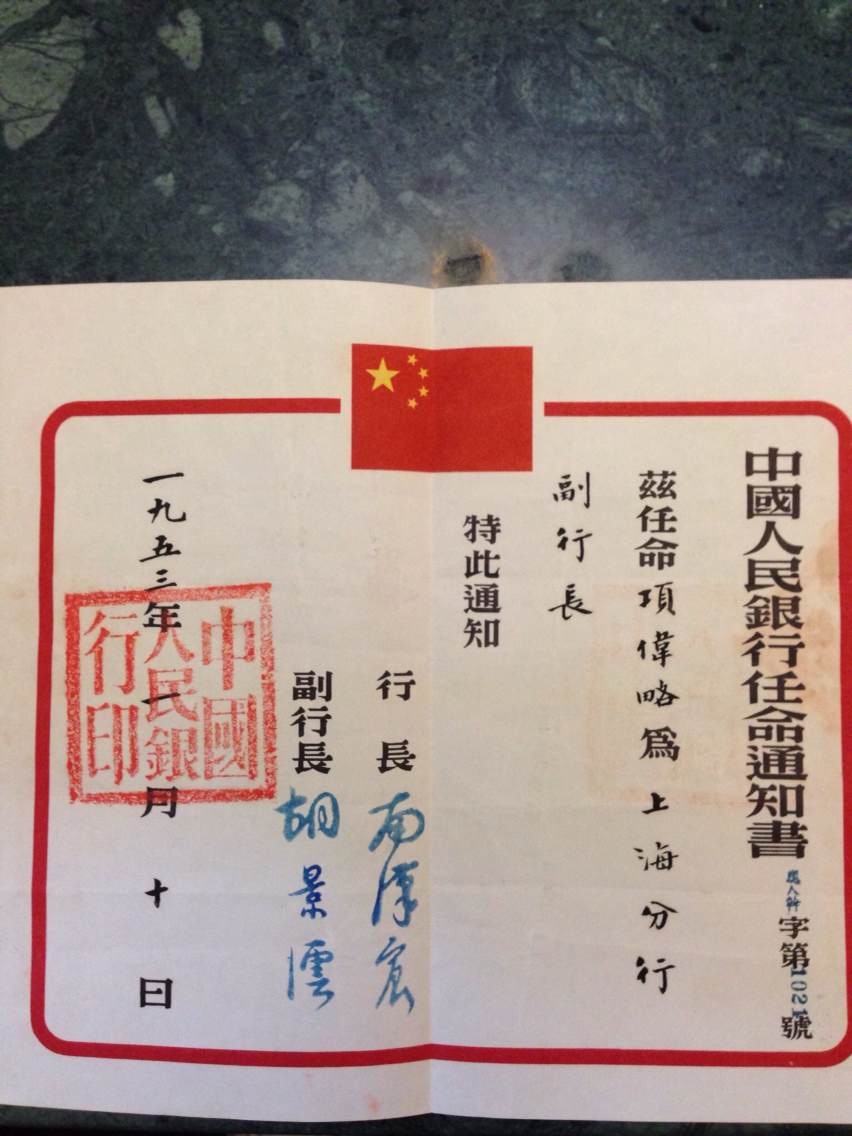 中國人民銀行任命通知書
字第1021號
茲任命項偉略爲上海分行
副行長
特此通知
行長 南漢宸
副行長 胡景澐
一九五三年一月十日
中國
人民銀
行印